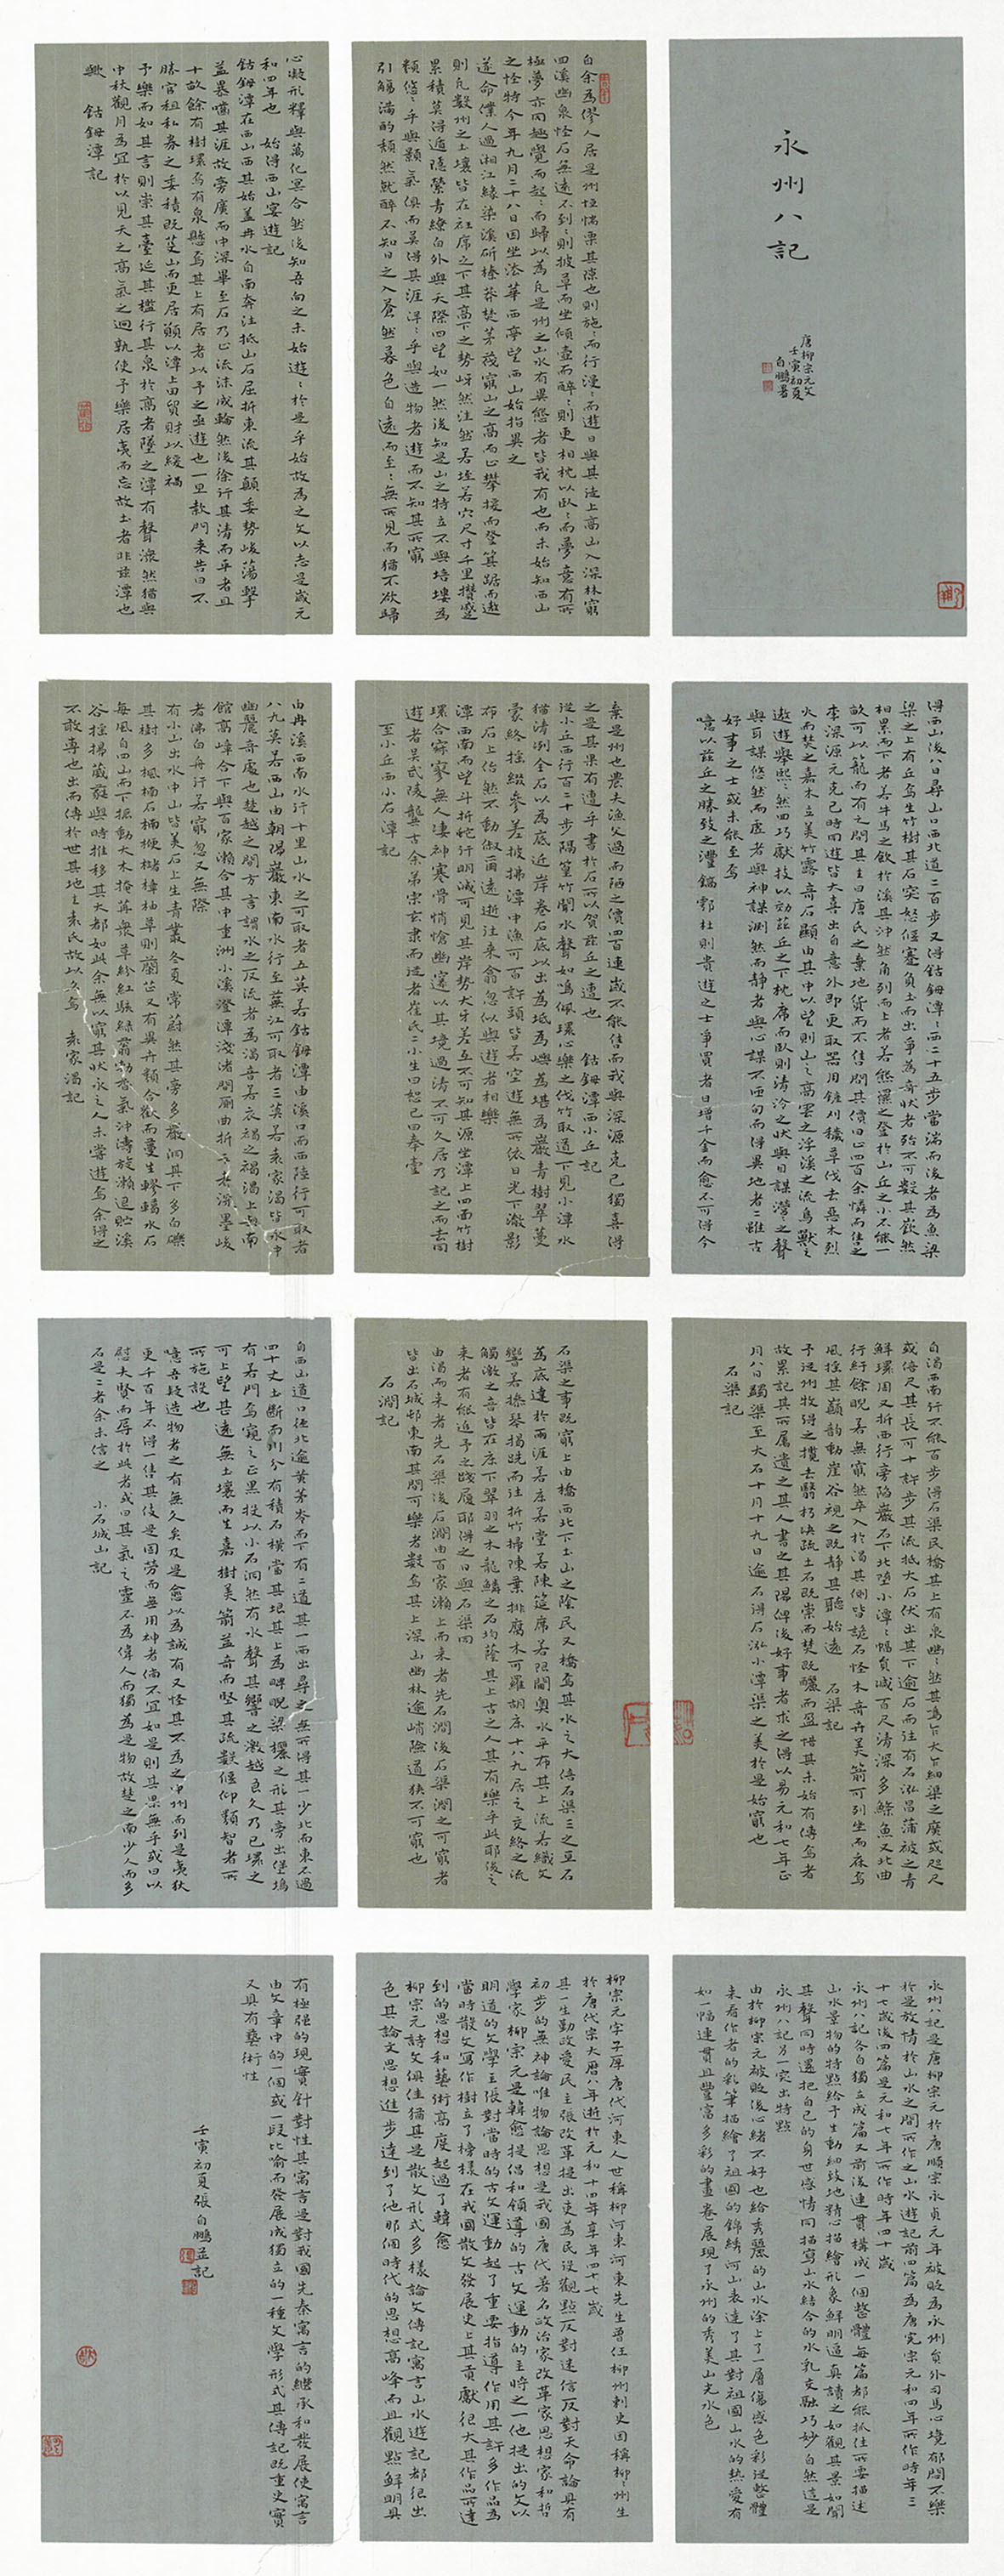 永州八記
唐柳宗元文
壬寅初夏
自鵬署
自余為僇人居是州恒惴栗其隙也則施〻而行漫〻而遊日與其徒上高山入深林窮
回溪幽泉怪石無遠不到〻則披草而坐傾壺而醉〻則更相枕以臥〻而夢意有所
極夢亦同趣覺而起〻而歸以為凡是州之山水有異態者皆我有也而未始知西山
之怪特今年九月二十八日因坐法華西亭望西山始指異之
遂命僕人過湘江緣染溪斫榛莽焚茅茷窮山之高而止攀援而登箕踞而遨
則凡數州之土壤皆在衽席之下其高下之勢岈然洼然若垤若穴尺寸千里攢蹙
累積莫得遁隱縈青繚白外與天際四望如一然後知是山之特立不與培塿為
類悠〻乎與顥氣俱而莫得其涯洋〻乎與造物者遊而不知其所窮
引觴滿酌頹然就醉不知日之入蒼然暮色自遠而至〻無所見而猶不欲歸
心凝形釋與萬化冥合然後知吾向之未始遊〻於是乎始故為之文以志是歲元
和四年也 始得西山宴遊記
鈷鉧潭在西山西其始蓋冉水自南奔注抵山石屈折東流其顛委勢峻蕩擊
益暴嚙其涯故旁廣而中深畢至石乃止流沫成輪然後徐行其清而平者且
十畝餘有樹環焉有泉懸焉其上有居者以予之亟遊也一旦款門來告曰不
勝官租私券之委積既芟山而更居願以潭上田貿財以緩禍
予樂而如其言則崇其臺延其檻行其泉於高者墜之潭有聲潨然猶與
中秋觀月為宜於以見天之高氣之迴孰使予樂居夷而忘故土者非茲潭也
歟 鈷鉧潭記
得西山後八日尋山口西北道二百步又得鈷鉧潭〻西二十五步當湍而浚者為魚梁
梁之上有丘焉生竹樹其石突怒偃蹇負土而出爭為奇狀者殆不可數其嶔然
相累而下者若牛馬之飲於溪其沖然角列而上者若熊羆之登於山丘之小不能一
畝可以籠而有之問其主曰唐氏之棄地貨而不售問其價曰止四百余憐而售之
李深源元克己時同遊皆大喜出自意外即更取器用鏟刈穢草伐去惡木烈
火而焚之嘉木立美竹露奇石顯由其中以望則山之高雲之浮溪之流鳥獸之
遨遊舉熙〻然回巧獻技以效茲丘之下枕席而臥則清泠之狀與目謀瀯〻之聲
與耳謀悠然而虛者與神謀淵然而靜者與心謀不匝旬而得異地者二雖古
好事之士或未能至焉
噫以茲丘之勝致之灃鎬鄠杜則貴遊之士爭買者日增千金而愈不可得今
棄是州也農夫漁父過而陋之價四百連歲不能售而我與深源克己獨喜得
之是其果有遭乎書於石所以賀茲丘之遭也 鈷鉧潭西小丘記
從小丘西行百二十步隔篁竹聞水聲如鳴佩環心樂之伐竹取道下見小潭水
猶清冽全石以為底近岸卷石底以出為坻為嶼為堪為巖青樹翠蔓
蒙絡搖綴參差披拂潭中漁可百許頭皆若空遊無所依日光下澈影
布石上佁然不動俶爾遠逝往來翕忽似與遊者相樂
潭西南而望斗折蛇行明滅可見其岸勢犬牙差互不可知其源坐潭上四面竹樹
環合寂寥無人淒神寒骨悄愴幽邃以其境過清不可久居乃記之而去同
遊者吳武陵龔古余弟宗玄隸而從者崔氏二小生曰恕己曰奉壹
至小丘西小石潭記
由冉溪西南水行十里山水之可取者五莫若鈷鉧潭由溪口而西陸行可取者
八九莫若西山由朝陽巖東南水行至蕪江可取者三莫若袁家渴皆永中
幽麗奇處也楚越之間方言謂水之反流者為渴音若衣褐之褐渴上與南
館高嶂合下與百家瀨合其中重洲小溪澄潭淺渚間廁曲折平者深墨峻
者沸白舟行若窮忽又無際
有小山出水中山皆美石上生青叢冬夏常蔚然其旁多巖洞其下多白礫
其樹多楓楠石楠楩櫧樟柚草則蘭芷又有異卉類合歡而蔓生轇轕水石
每風自四山而下振動大木掩苒眾草紛紅駭綠蓊勃香氣沖濤旋瀨退貯溪
谷搖揚葳蕤與時推移其大都如此余無以窮其狀永之人未嘗遊焉余得之
不敢專也出而傳於世其地主袁氏故以名焉 袁家渴記
自渴西南行不能百步得石渠民橋其上有泉幽〻然其鳴乍大乍細渠之廣或咫尺
或倍尺其長可十許步其流抵大石伏出其下逾石而往有石泓昌蒲被之青
鮮環周又折西行旁陷巖石下北墮小潭〻幅員減百尺清深多鯈魚又北曲
行紆餘睨若無窮然卒入於渴其側皆詭石怪木奇卉美箭可列坐而庥焉
風搖其顛韻動崖谷視之既靜其聽始遠 石渠記
予從州牧得之攬去翳朽決疏土石既崇而焚既釃而盈惜其未始有傳焉者
故累記其所屬遺之其人書之其陽俾後好事者求之得以易元和七年正
月八日蠲渠至大石十月十九日逾石得石泓小潭渠之美於是始窮也
石渠記
石渠之事既窮上由橋西北下土山之陰民又橋焉其水之大倍石渠三之亘石
為底達於兩涯若床若堂若陳筵席若限閫奧水平布其上流若織文
響若操琴揭跣而往折竹掃陳葉排腐木可羅胡床十八九居之交絡之流
觸激之音皆在床下翠羽之木龍鱗之石均蔭其上古之人其有樂乎此耶後之
來者有能追予之踐履耶得之日與石渠同
由渴而來者先石渠後石澗由百家瀨上而來者先石澗後石渠澗之可窮者
皆出石城邨東南其間可樂者數焉其上深山幽林逾峭險道狹不可窮也
石澗記
自西山道口徑北逾黃茅嶺而下有二道其一西出尋之無所得其一少北而東不過
四十丈土斷而川分有積石橫當其垠其上為睥睨梁欐之形其旁出堡塢
有若門焉窺之正黑投以小石洞然有水聲其響之激越良久乃已環之
可上望甚遠無土壤而生嘉樹美箭益奇而堅其疏數偃仰類智者所
所施設也
噫吾疑造物者之有無久矣及是愈以為誠有又怪其不為之中州而列是夷狄
更千百年不得一售其伎是固勞而無用神者倘不宜如是則其果無乎或曰以
慰夫賢而辱於此者或曰其氣之靈不為偉人而獨為是物故楚之南少人而多
石是二者余未信之 小石城山記
永州八記是唐柳宗元於唐順宗永貞元年被貶為永州員外司馬心境郁悶不樂
於是放情於山水之間所作之山水遊記前四篇為唐憲宗元和四年所作時年三
十七歲後四篇是元和七年所作時年四十歲
永州八記各自獨立成篇又前後連貫構成一個整體每篇都能抓住所要描述
山水景物的特點給予生動細致地精心描繪形象鮮明逼真讀之如觀其景如聞
其聲同時還把自己的身世感情同描寫山水結合的水乳交融巧妙自然這是
永州八記另一突出特點
由於柳宗元被貶後心緒不好也給秀麗的山水涂上了一層傷感色彩從整體
來看作者的彩筆描繪了祖國的錦綉河山表達了其對祖國山水的熱愛有
如一幅連貫且豐富多彩的畫卷展現了永州的秀美山光水色
柳宗元字子厚唐代河東人世稱柳河東河東先生曾任柳州刺史因稱柳〻州生
於唐代宗大曆八年逝於元和十四年享年四十七歲
其一生勤政愛民主張改革提出吏為民役觀點反對迷信反對天命論具有
初步的無神論唯物論思想是我國唐代著名政治家改革家思想家和哲
學家柳宗元是韓愈提倡和領導的古文運動的主將之一他提出的文以
明道的文學主張對當時的古文運動起了重要指導作用其許多作品為
當時散文寫作樹立了榜樣在我國散文發展史上其貢獻很大其作品所達
到的思想和藝術高度超過了韓愈
柳宗元詩文俱佳猶其是散文形式多樣論文傳記寓言山水遊記都很出
色其論文思想進步達到了他那個時代的思想高峰而且觀點鮮明具
有極強的現實針對性其寓言是對我國先秦寓言的繼承和發展使寓言
由文章中的一個或一段比喻而發展成獨立的一種文學形式其傳記既重史實
又具有藝術性
壬寅初夏張自鵬並記